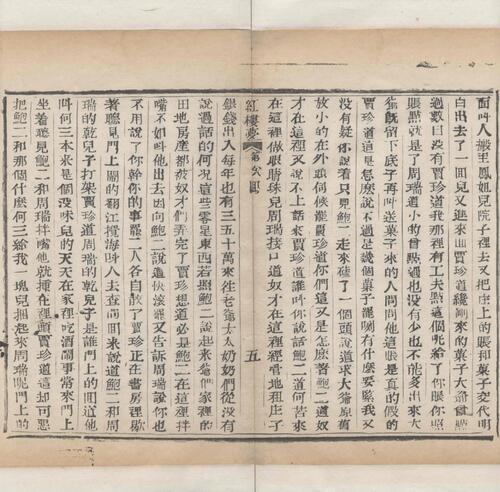 面叫人搬至鳳姐兒院子裡去又把庄上的賬和菓子交代明
白出去了一回兒又進來回賈珍道纔剛來的菓子大爺曾點
過數目沒有賈珍道我那裡有工夫點這個呢給了你賬你照
賬點就是了周瑞道小的曾點過也沒有少也不能多出來大
爺既留下底子再叫送菓子來的人問問他這賬是真的假的
賈珍道這是怎麽說不過是幾個菓子罷咧有什麽要緊我又
沒有疑你說着只見鮑二走來磕了一個頭說道求大爺原有
放小的在外頭伺候罷賈珍道你們這又是怎麽著鮑二道奴
才在這裡又說不上話來賈珍道誰叫你說話鮑二道何苦來
在這裡做眼睛珠兒周瑞接口道奴才在這裡經管地租庄子
紅樓夢 第回 五
銀錢出入每年也有三五十萬來往老爺太太奶奶們從沒有
說過話的何況這些零星東西若照鮑二說起來爺們家裡的
田地房產都被奴才們弄完了賈珍想道必是鮑二在這裡拌
嘴不如叫他出去因向鮑二說道快滾罷又告訴周瑞說你也
不用說了你幹你的事罷二人各自散了賈珍正在書房裡歇
著聽見門上鬧的翻江攪海叫人去查問回來說道鮑二和周
瑞的乾兒子打架賈珍道周瑞的乾兒子是誰門上的回道他
叫何三本來是個沒味兒的天天在家裡吃酒鬧事常來門上
坐着聽見鮑二和周瑞拌嘴他就揷在裡頭賈珍道這却可惡
把鮑二和那個什麽何三給我一塊兒捆起來周瑞呢門上的